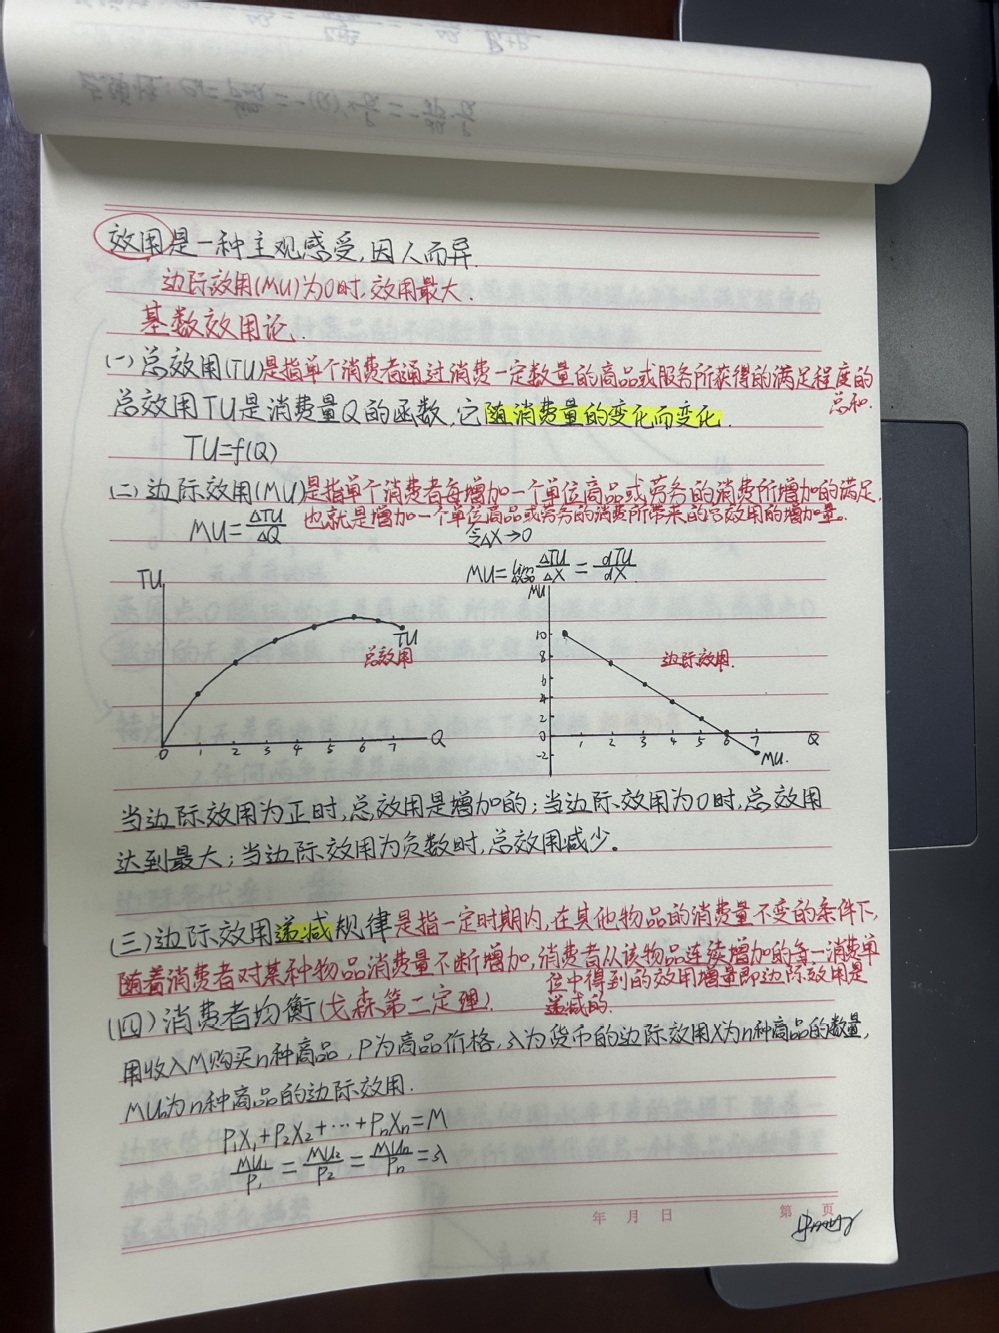 效用是一种主观感受,因人而异.
边际效用(MU)为0时,效用最大.
基数效用论.
(一)总效用(TU)是指单个消费者通过消费一定数量的商品或服务所获得的满足程度的
总和.
总效用TU是消费量Q的函数,它随消费量的变化而变化.
TU=f(Q)
(二)边际效用(MU)是指单个消费者每增加一个单位商品或劳务的消费所增加的满足.
也就是增加一个单位商品或劳务的消费所带来的总效用的增加量。
MU=ΔTU/ΔQ
令ΔX→0
MU=lim ΔTU/ΔX = dTU/dX
TU
TU
总效用
0 1 2 3 4 5 6 7 Q
MU
10
8
6
4
2
0
-2
边际效用.
1 2 3 4 5 6 7 Q
MU.
当边际效用为正时,总效用是增加的;当边际效用为0时,总效用
达到最大;当边际效用为负数时,总效用减少。
(三)边际效用递减规律是指一定时期内,在其他物品的消费量不变的条件下,
随着消费者对某种物品消费量不断增加,消费者从该物品连续增加的每一消费单
位中得到的效用增量即边际效用是
递减的.
(四)消费者均衡(戈森第二定理).
用收入M购买n种商品,P为商品价格,λ为货币的边际效用X为n种商品的数量,
MUn为n种商品的边际效用.
P₁X₁+P₂X₂+…+PₙXₙ=M
MU₁/P₁=MU₂/P₂=MUₙ/Pₙ=λ
年 月 日 第 页